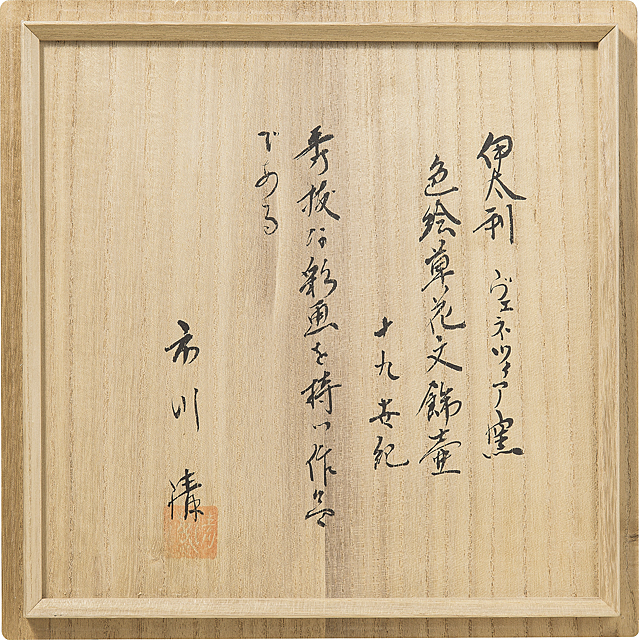 伊太利 ヴェネツィア窯
色絵草花文飾壷
十九世紀
秀抜な彩画を持つ作品
である
市川 清